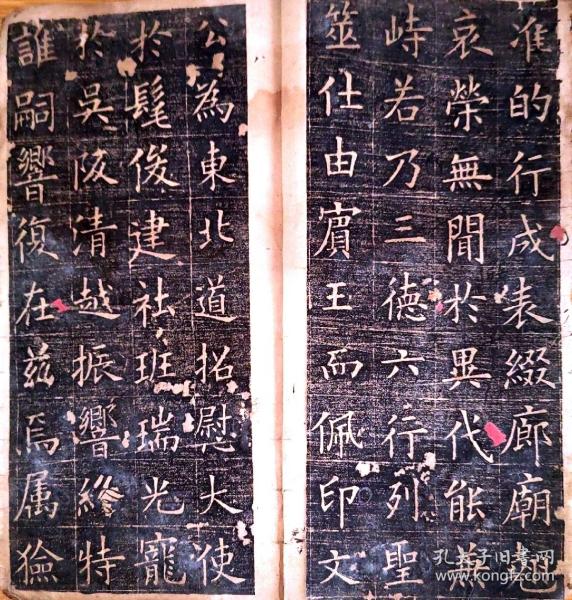 准的行成表綴廊廟
哀榮無聞於異代能
峙若乃三德六行列聖
筮仕由賓王而佩印文
公為東北道招慰大使
於髦俊建社班瑞光寵
於吳阪清越振響終特
誰嗣響復在茲焉属獫
孔夫子旧书网
www.kongfz.com